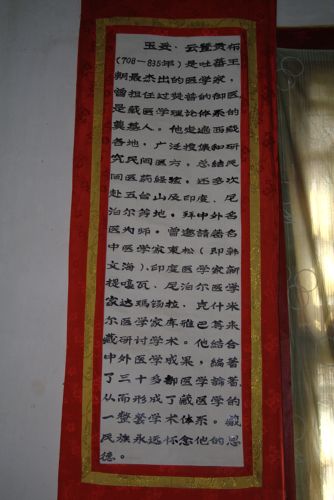 玉妥·云登贡布
(708-835年)是吐蕃王
朝最杰出的医学家,
曾担任过赞普的御医,
是藏医学理论体系的
奠基人。他走遍西藏
各地,广泛搜集和研
究民间医方,总结民
间医药经验,还多次
赴五台山及印度、尼
泊尔等地,拜中外名
医为师。曾邀请著名
中医学家東松(即韩
文海),印度医学家新
提嘎瓦、尼泊尔医学
家达玛锡拉,克什米
尔医学家库雅巴等来
藏研讨学术。他结合
中外医学成果,编著
了三十多部医学论著,
从而形成了藏医学的
一整套学术体系。藏
民族永远怀念他的恩
德。